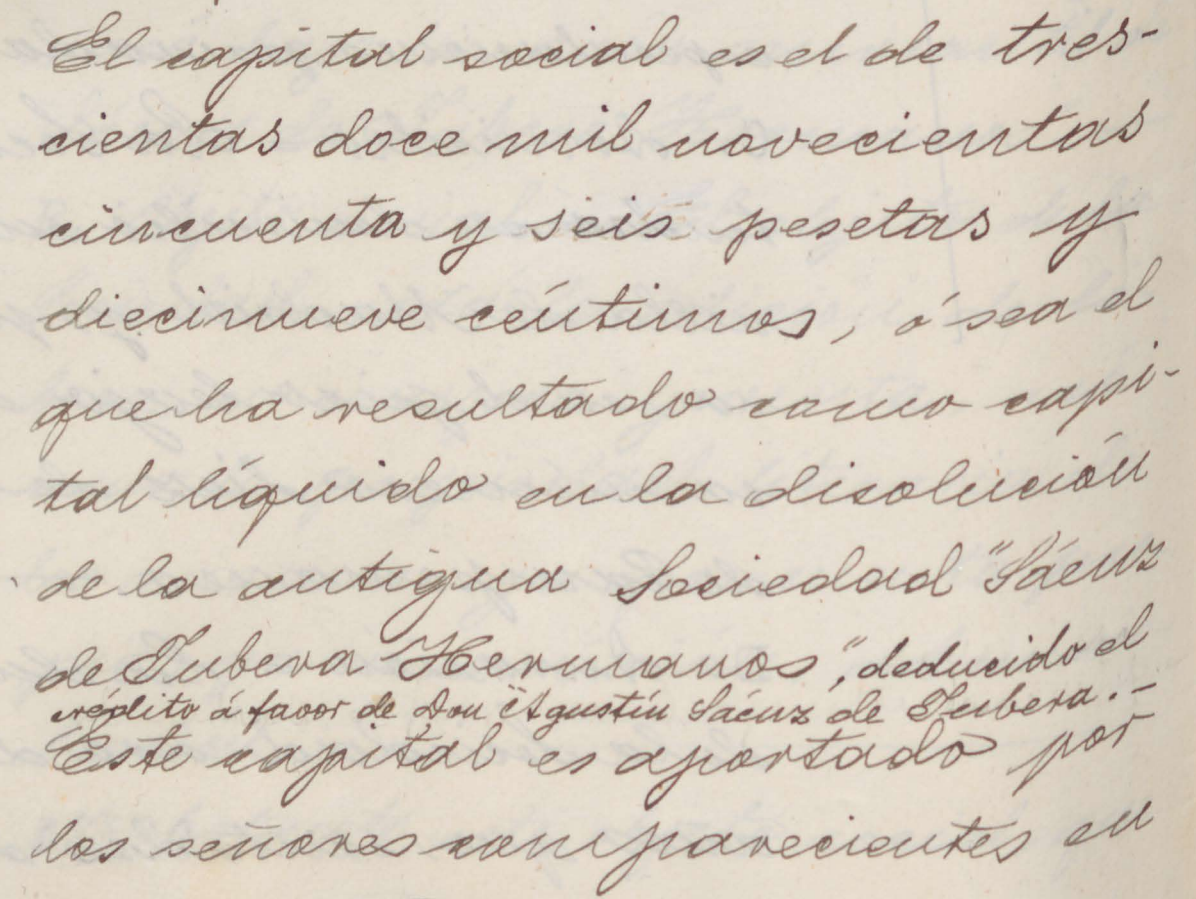 El capital social es el de tres-
cientas doce mil novecientas
cincuenta y seis pesetas y
diecinueve céntimos, ó sea el
que ha resultado como capi-
tal líquido en la disolución
de la antigua Sociedad "Sáenz
de Tubera Hermanos", deducido el
crédito á favor de Don Agustín Sáenz de Tubera.-
Este capital es aportado por
los señores comparecientes en